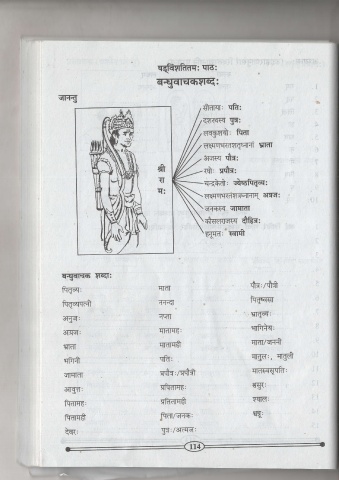 षड्विंशतितमः पाठः
बन्धुवाचकशब्दः
जानन्तु
श्री
रा
मः
सीतायाः पतिः
दशरथस्य पुत्रः
लवकुशयोः पिता
लक्ष्मणभरतशत्रुघ्नानां भ्राता
अजस्य पौत्रः
रघोः प्रपौत्रः
चन्द्रकेतोः ज्येष्ठपितृव्यः
लक्ष्मणभरतशत्रुघ्नानाम् अग्रजः
जनकस्य जामाता
कौसलराजस्य दौहित्रः
हनुमतः स्वामी
बन्धुवाचक शब्दाः
पितृव्यः माता पौत्रः/पौत्री
पितृव्यपत्नी ननन्दा पितृष्वसा
अनुजः नप्ता भ्रातृव्यः
अग्रजः मातामहः भागिनेयः
भ्राता मातामही माता/जननी
भगिनी पतिः मातुलः, मातुली
जामाता प्रपौत्रः/प्रपौत्री
आवुत्तः प्रपितामहः श्वसुरः
पितामहः प्रपितामही श्यालः
पितामही पिता/जनकः श्वश्रूः
देवरः पुत्रः/आत्मजः
114